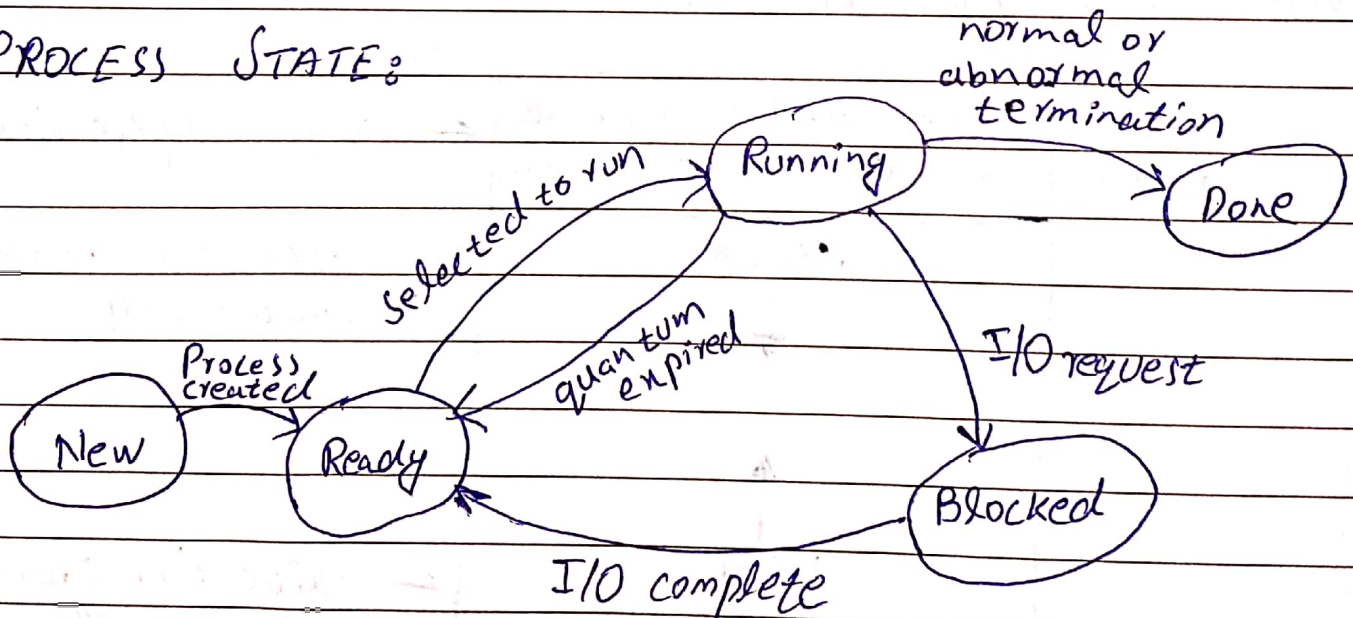 PROCESS STATE:
normal or
abnormal
termination
Running
Done
selected to run
quantum
expired
I/O request
Process
created
New
Ready
Blocked
I/O complete